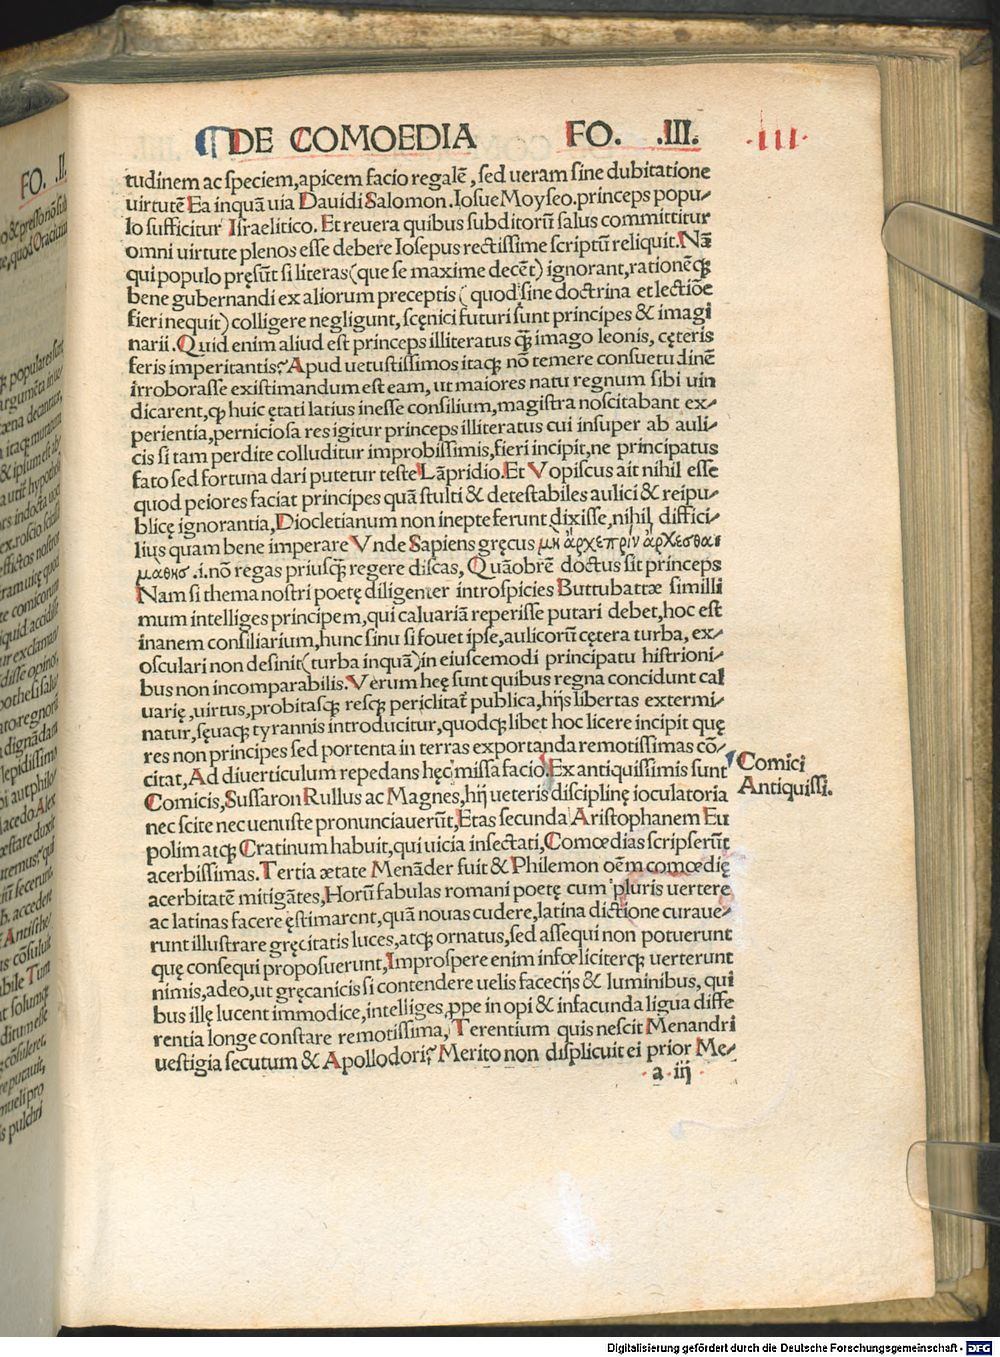 DE COMOEDIA FO. .III. .III.
tudinem ac speciem,apicem facio regalē, sed ueram sine dubitatione
uirtutē Ea inquā uia Dauidi Salomon. Iosue Moyseo.princeps popu-
lo sufficitur Israelitico. Et reuera quibus subditorū salus committitur
omni uirtute plenos esse debere Iosepus rectissime scriptū reliquit.Nā
qui populo pręsūt si literas(que se maxime decēt) ignorant,rationēqꝫ
bene gubernandi ex aliorum preceptis ( quod sine doctrina et lectiōe
fieri nequit) colligere negligunt, scęnici futuri sunt principes & imagi
narii. Quid enim aliud est princeps illiteratus qꝫ̄ imago leonis, cęteris
feris imperitantis? Apud uetustissimos itaqꝫ nō temere consuetudinē
irroborasse existimandum est eam, ut maiores natu regnum sibi uin
dicarent,qꝫ huic ętati latius inesse consilium,magistra noscitabant ex-
perientia,perniciosa res igitur princeps illiteratus cui insuper ab auli-
cis si tam perdite colluditur improbissimis,fieri incipit,ne principatus
fato sed fortuna dari putetur teste Lāpridio.Et Vopiscus ait nihil esse
quod peiores faciat principes quā stulti & detestabiles aulici & reipu-
blicę ignorantia,Diocletianum non inepte ferunt dixisse,nihil diffici-
lius quam bene imperare Vnde Sapiens gręcus μὴ ἄρχε πρὶν ἄρχεσθαι
μάθης .i.nō regas priusqꝫ̄ regere discas, Quāobrē doctus sit princeps
Nam si thema nostri poetę diligenter introspicies Buttubattæ simili
mum intelliges principem,qui caluariā reperisse putari debet,hoc est
inanem consiliarium,hunc sinu si fouet ipse,aulicorū cętera turba, ex-
osculari non desinit(turba inquā)in eiuscemodi principatu histrioni-
bus non incomparabilis.Verum heę sunt quibus regna concidunt cal
uarię,uirtus,probitasqꝫ resqꝫ periclitat̄ publica,hijs libertas extermi-
natur,sęuaqꝫ tyrannis introducitur,quodqꝫ libet hoc licere incipit quę
res non principes sed portenta in terras exportanda remotissimas cō-
citat, Ad diuerticulum repedans hęc missa facio. Ex antiquissimis sunt
Comicis,Sussaron Rullus ac Magnes,hij ueteris disciplinę ioculatoria
nec scite nec uenuste pronunciauerūt,Etas secunda Aristophanem Eu
polim atqꝫ Cratinum habuit,qui uicia insectati,Comœdias scripserūt
acerbissimas. Tertia ætate Menāder fuit & Philemon oēm comœdię
acerbitatē mitigātes,Horū fabulas romani poetę cum pluris uertere
ac latinas facere ęstimarent,quā nouas cudere,latina dictione curaue-
runt illustrare gręcitatis luces,atqꝫ ornatus,sed assequi non potuerunt
quę consequi proposuerunt,Improspere enim infœliciterqꝫ uerterunt
nimis,adeo,ut gręcanicis si contendere uelis facecijs & luminibus, qui
bus illę lucent immodice,intelliges,ꝓpe inopi & infacunda ligua diffe
rentia longe constare remotissima, Terentium quis nescit Menandri
uestigia secutum & Apollodori? Merito non displicuit ei prior Me-
a iij
Comici
Antiquissi.
FO. .II.
Digitalisierung gefördert durch die Deutsche Forschungsgemeinschaft - DFG